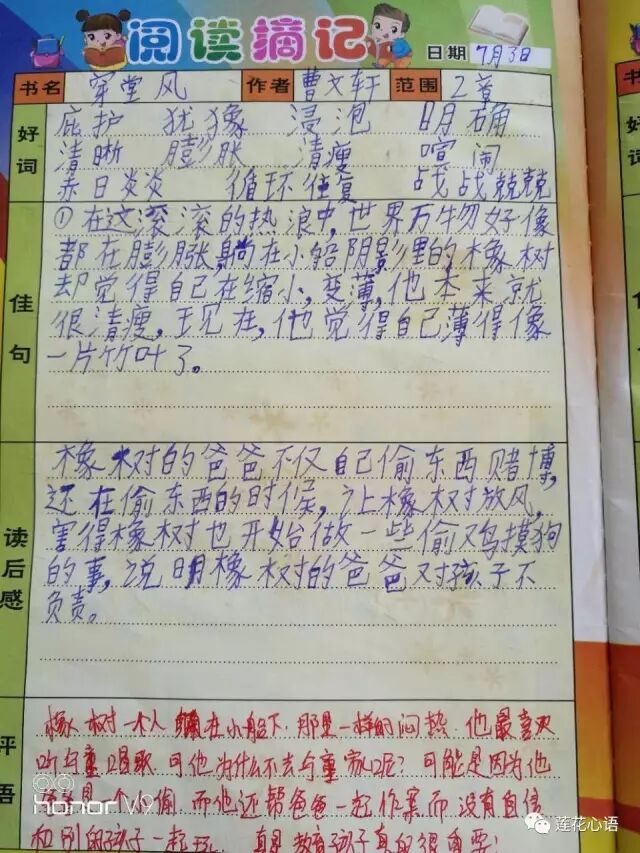 阅读摘记
日期 7月3日
书名 穿堂风 作者 曹文轩 范围 2章
好词
庇护 犹豫 浸泡 明确
清晰 膨胀 清瘦 喧闹
赤日炎炎 循环往复 战战兢兢
佳句
①在这滚滚的热浪中,世界万物好像
都在膨胀,躺在小船阴影里的橡树
却觉得自己在缩小,变薄,他本来就
很清瘦,现在,他觉得自己薄得像
一片竹叶了。
读后感
橡树的爸爸不仅自己偷东西赌博,
还在偷东西的时候,让橡树放风,
害得橡树也开始做一些偷鸡摸狗
的事,说明橡树的爸爸对孩子不
负责。
评语
橡树一个人躺在小船下,那是一样的闷热,他最喜欢
听乌童唱歌,可他为什么不去乌童家呢?可能是因为他
是一个小偷,而他还帮爸爸一起作案而没有自信
和别的孩子一起玩,真是教育孩子真的很重要!
honor V9
莲花心语